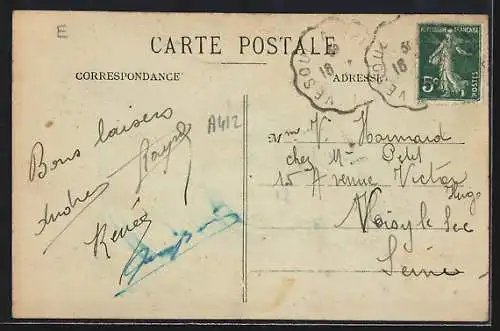 E
CARTE POSTALE
CORRESPONDANCE
ADRESSE
VESOUL
18
VESOUL
18
REPUBLIQUE FRANÇAISE
5c
POSTES
A412
Bons baisers
Andre
Renée
chez Mr Petit
15 Avenue Victor
Hugo
Noisy le Sec
Seine